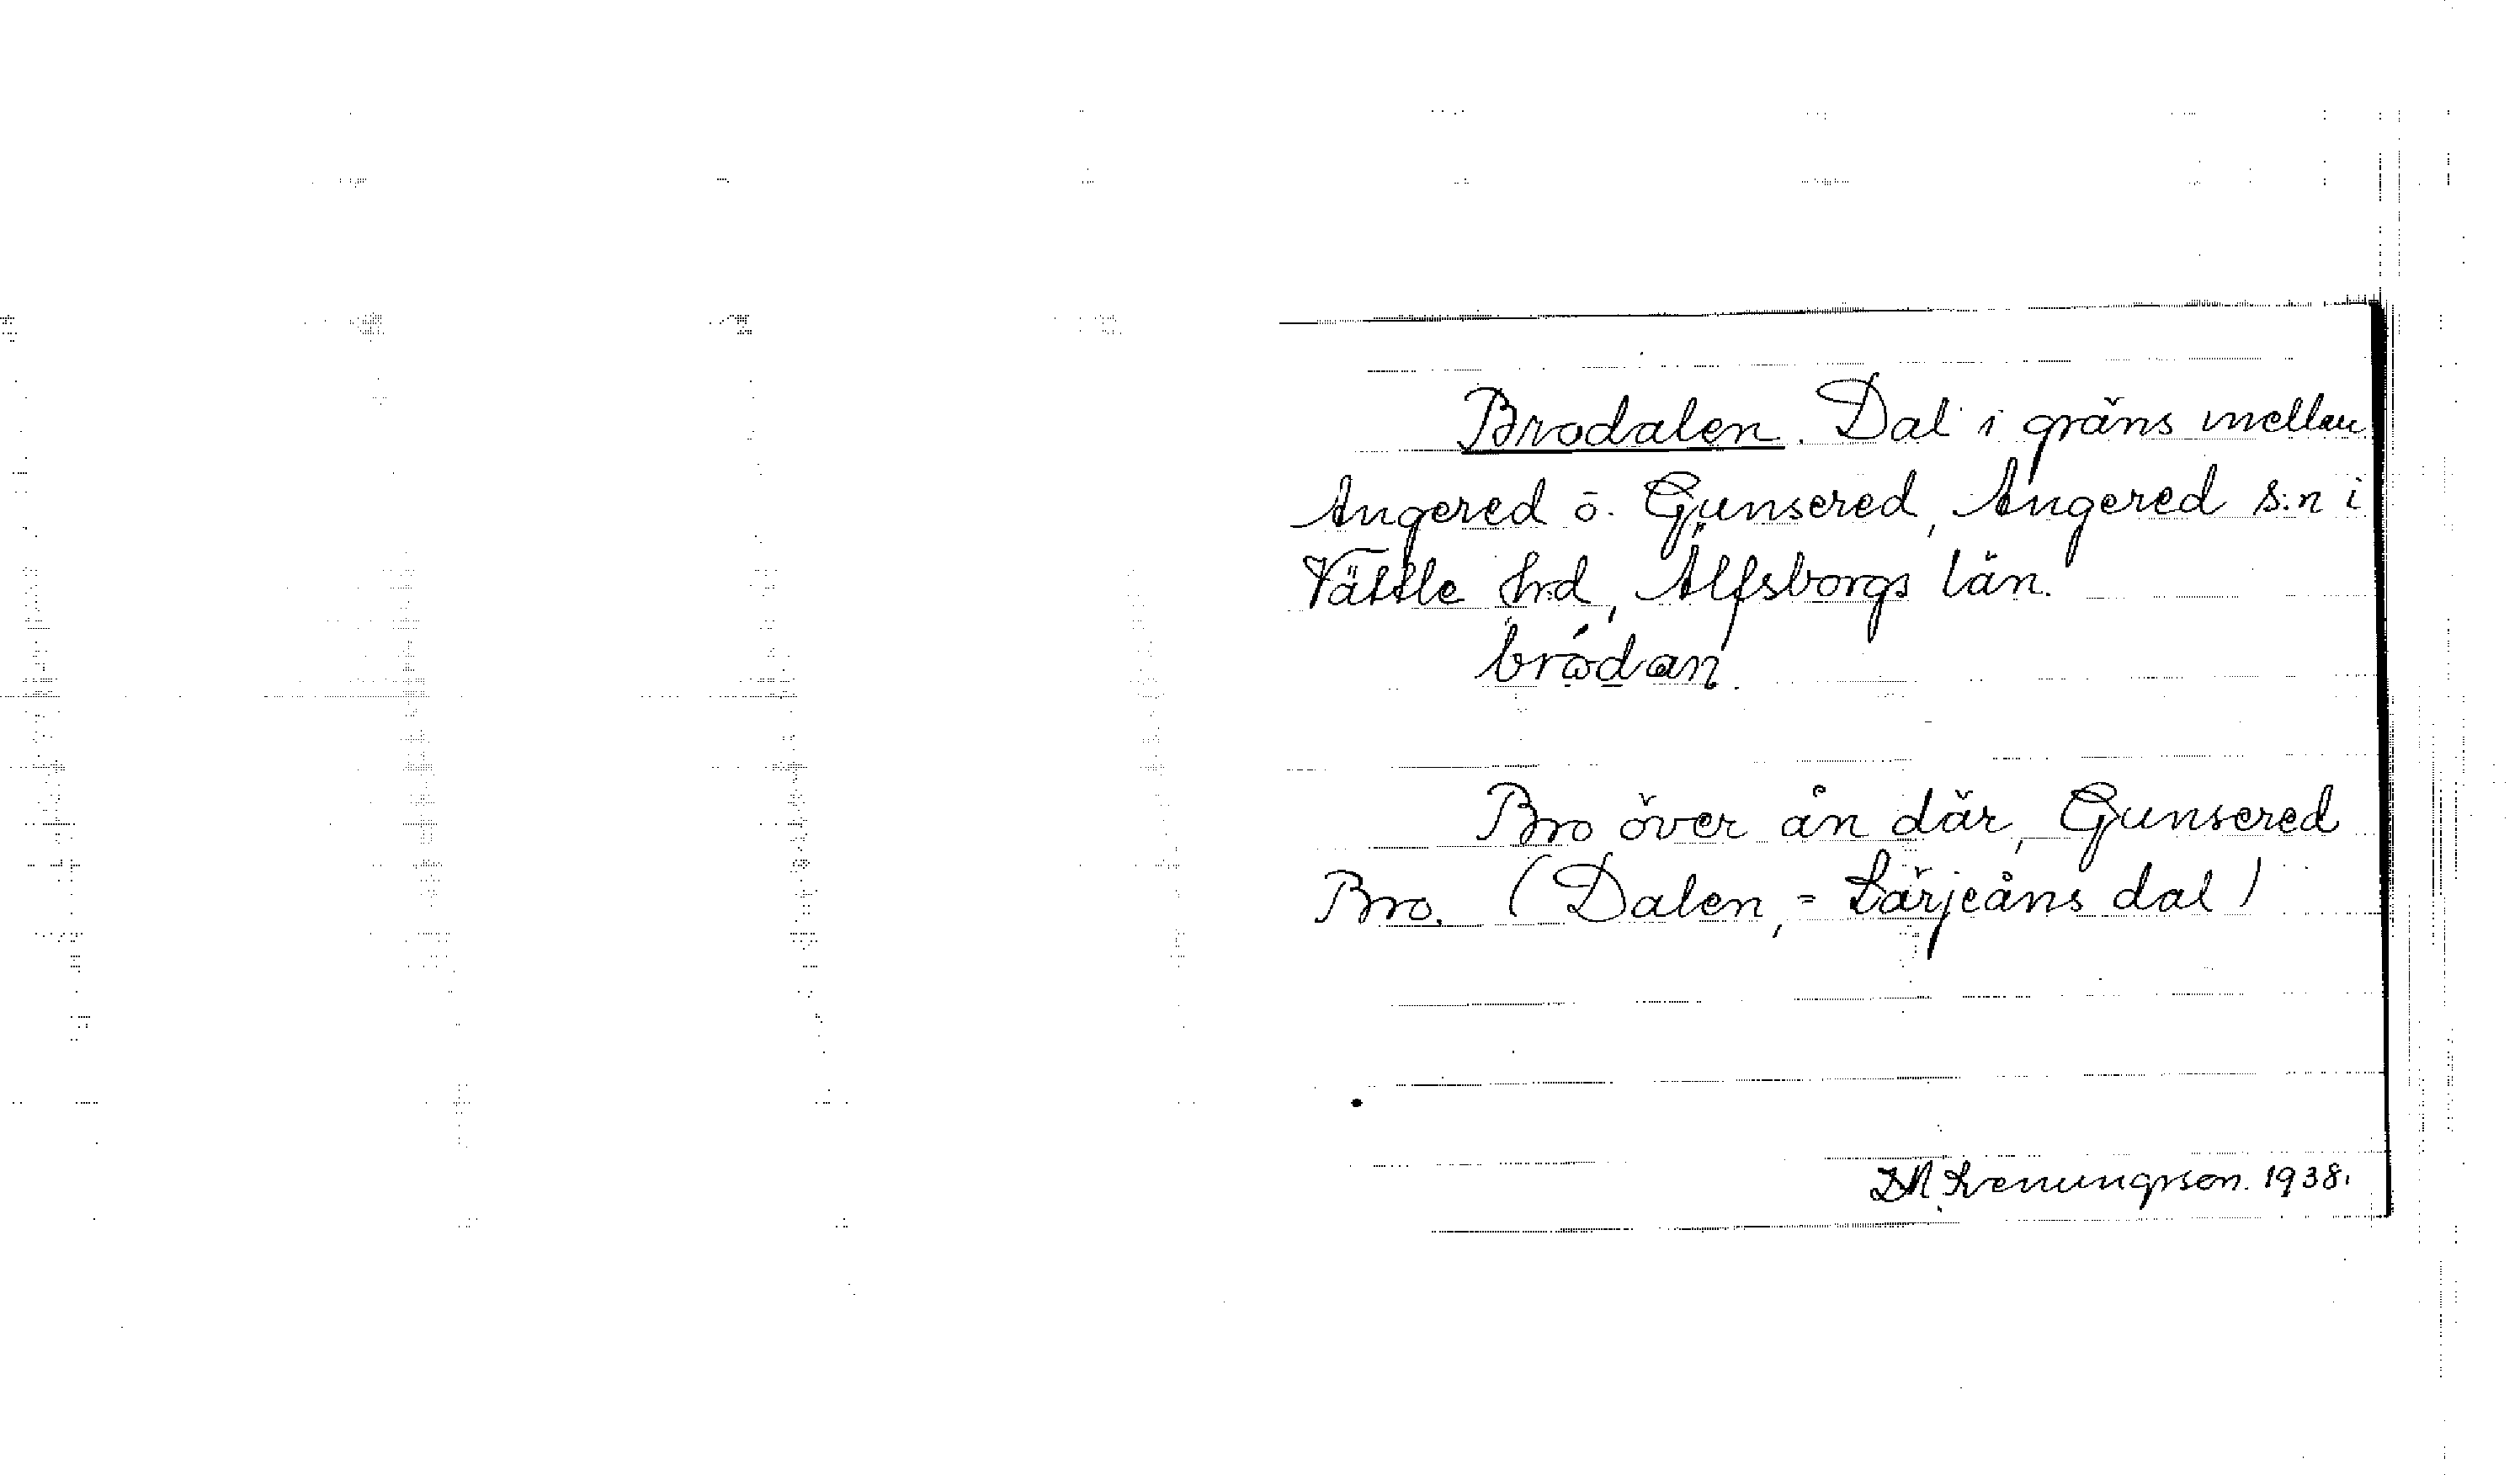 Brodalen. Dal i gräns mellan
Angered o. Gunsered, Angered s:n i
Vättle hrd, Älfsborgs län.
brodan.
Bro över ån där, Gunsered
Bro. (Dalen, = Lärjeåns dal)
1938.